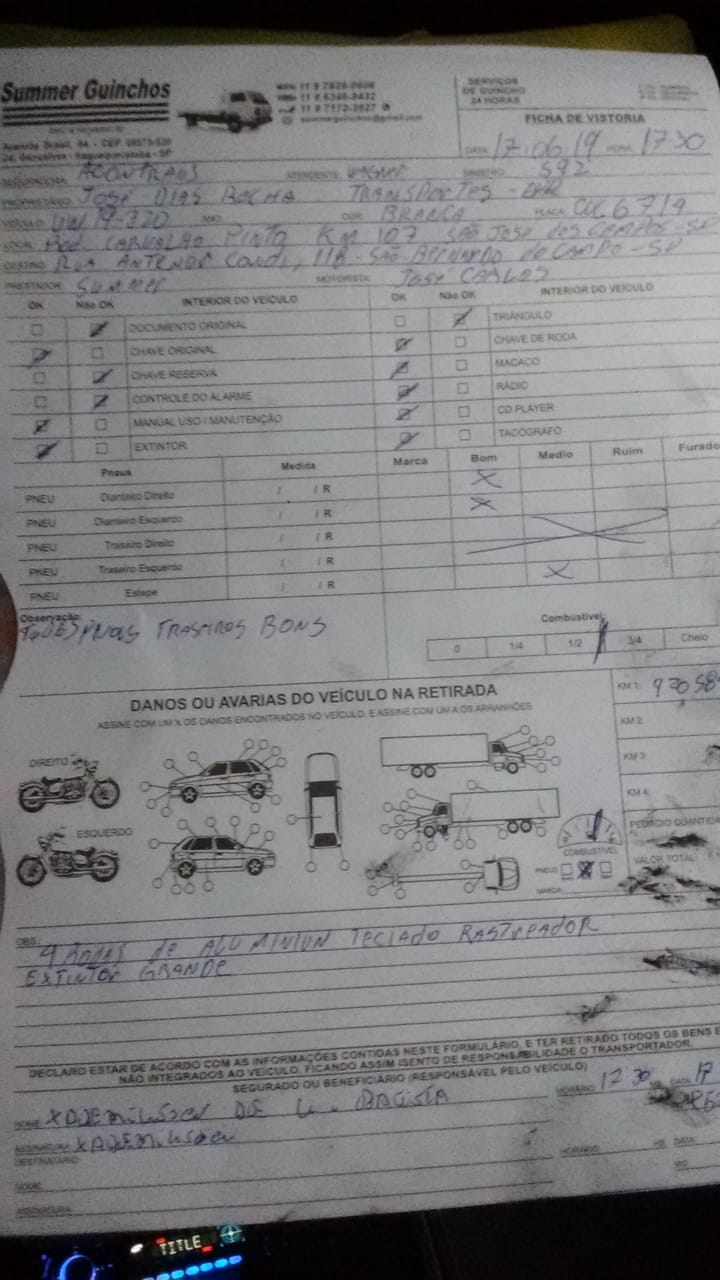 Summer Guinchos
11 9 7828-0608
11 9 6346-9432
11 9 7172-3627
summerguinchos@gmail.com
SERVIÇOS
DE GUINCHO
24 HORAS
FICHA DE VISTORIA
Avenida Brasil, - CEP
- Itaquaquecetuba - SP
DATA: 17.06.19 HORA: 1730
SEGURADORA: ACONTRANS ATENDENTE: WAGNER SINISTRO: 592
PROPRIETÁRIO: JOSÉ DIAS ROCHA TRANSPORTES -
VEÍCULO: VW 19-320 ANO: COR: BRANCA PLACA: CUC 6714
LOCAL: ROD. CARVALHO PINTO KM 107 SÃO JOSÉ DOS CAMPOS-SP
DESTINO: RUA ANTENOR 118 - SÃO BERNARDO do CAMPO-SP
PRESTADOR: SUMMER MOTORISTA: JOSÉ CARLOS
OK Não OK INTERIOR DO VEÍCULO OK Não OK INTERIOR DO VEÍCULO
DOCUMENTO ORIGINAL TRIÂNGULO
CHAVE ORIGINAL CHAVE DE RODA
CHAVE RESERVA MACACO
CONTROLE DO ALARME RÁDIO
MANUAL USO / MANUTENÇÃO CD PLAYER
EXTINTOR TACÓGRAFO
Pneus Medida Marca Bom Medio Ruim Furado
PNEU Dianteiro Direito / / R X
PNEU Dianteiro Esquerdo / / R X
PNEU Traseiro Direito / / R
PNEU Traseiro Esquerdo / / R
PNEU Estepe / / R X
Observação:
TODOS PNEUS TRASEIROS BONS
Combustível:
0 1/4 1/2 3/4 Cheio
DANOS OU AVARIAS DO VEÍCULO NA RETIRADA
ASSINE COM UM X OS DANOS ENCONTRADOS NO VEÍCULO, E ASSINE COM UM A OS ARRANHÕES
KM 1:
KM 2:
KM 3:
KM 4:
DIREITO
ESQUERDO
PEDÁGIO QUANTIDA
VALOR TOTAL:
COMBUSTIVEL
PNEUS
MARCA:
OBS.:
RODAS de ALUMINIUN TECLADO RASTREADOR
EXTINTOR GRANDE
DECLARO ESTAR DE ACORDO COM AS INFORMAÇÕES CONTIDAS NESTE FORMULÁRIO, E TER RETIRADO TODOS OS BENS E
NÃO INTEGRADOS AO VEÍCULO, FICANDO ASSIM ISENTO DE RESPONSABILIDADE O TRANSPORTADOR.
SEGURADO OU BENEFICIÁRIO (RESPONSÁVEL PELO VEÍCULO)
NOME: X BATISTA HORÁRIO: 17 30 DATA: 17
ASSINATURA:
DESTINATÁRIO:
HORÁRIO: HS DATA:
NOME:
ASSINATURA:
TITLE